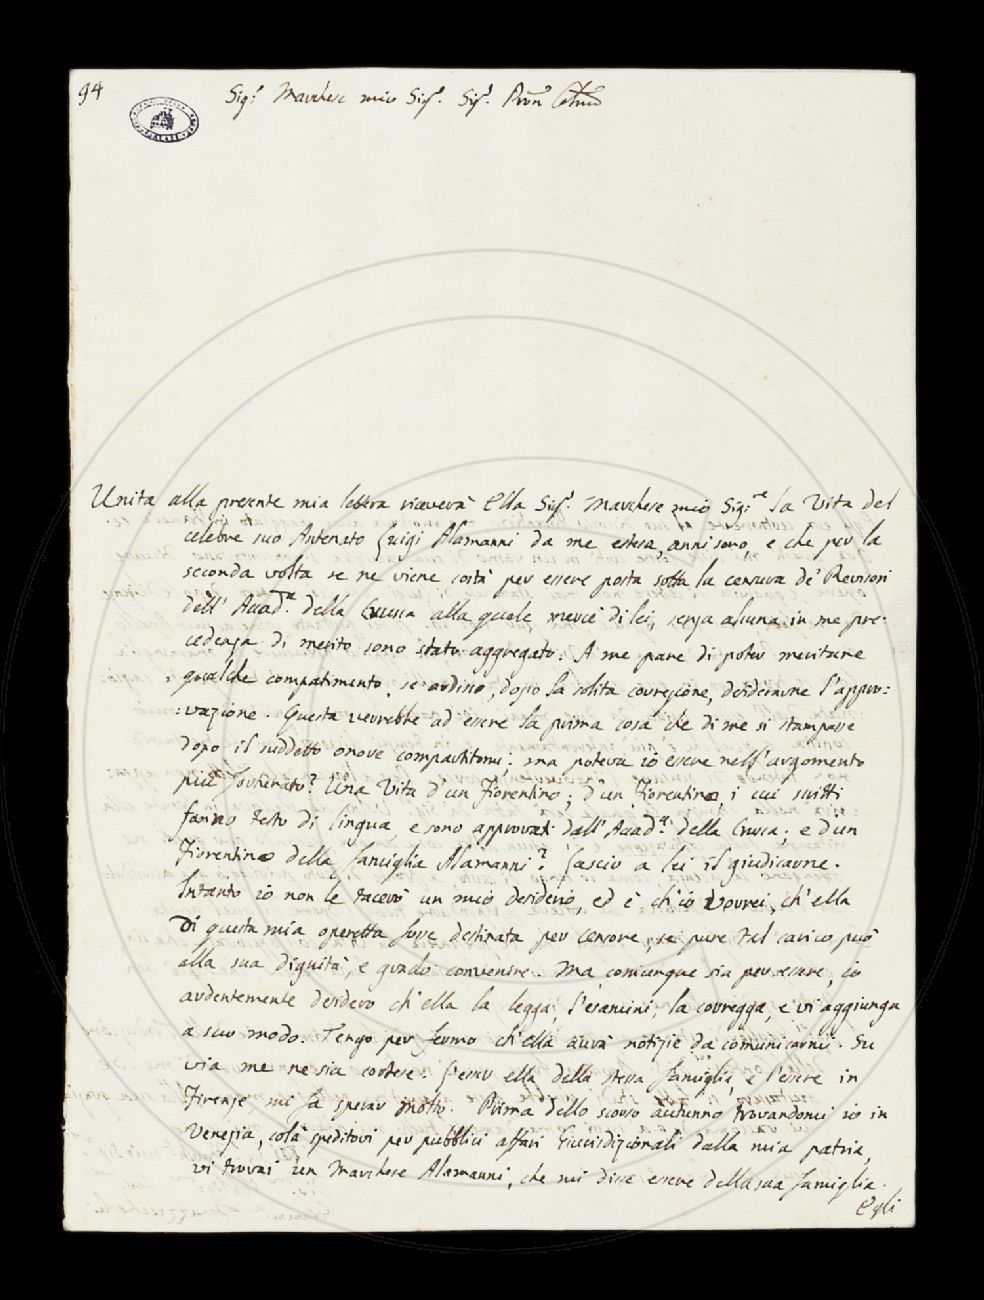 94
Sig.r Marchese mio Sig.r Sig.r Pron Colmo
Unita alla presente mia lettera riceverà Ella Sig.r Marchese mio Sig.re la Vita del
celebre suo Antenato Luigi Alamanni da me estesa, anni sono, e che per la
seconda volta se ne viene costà per essere posta sotto la censura de' Revisori
dell' Accad.a della Crusca alla quale, mercè di lei, senza alcuna in me pre-
cedenza di merito sono stato aggregato. A me pare di poter meritare
qualche compatimento, se ardisco, dopo la solita correzione, desiderarne l'appro:
:vazione. Questa verrebbe ad essere la prima cosa, che di me si stampasse
dopo il suddetto onore compartitomi; ma poteva io essere nell'argomento
più fortunato? Una Vita d'un Fiorentino; d'un Fiorentino, i cui scritti
fanno testo di lingua, e sono approvati dall'Accad.a della Crusca; e d'un
Fiorentino della famiglia Alamanni? Lascio a lei il giudicarne.
Intanto io non le tacerò un mio desiderio, ed è ch'io vorrei, ch'ella
di questa mia operetta fosse destinata per Censore, se pure tal carico può
alla sua dignità, e grado convenire. Ma, comunque sia per essere, io
ardentemente desidero ch'ella la legga, l'esamini, la corregga, e vi aggiunga
a suo modo. Tengo per fermo ch'ella avrà notizie da comunicarmi. Su
via me ne sia cortese. L'esser ella della stessa famiglia, e l'essere in
Firenze mi fa sperar molto. Prima dello scorso autunno trovandomi io in
Venezia, colà speditovi per pubblici affari Giurisdizionali dalla mia patria,
vi trovai un Marchese Alamanni, che mi disse essere della sua famiglia.
Egli